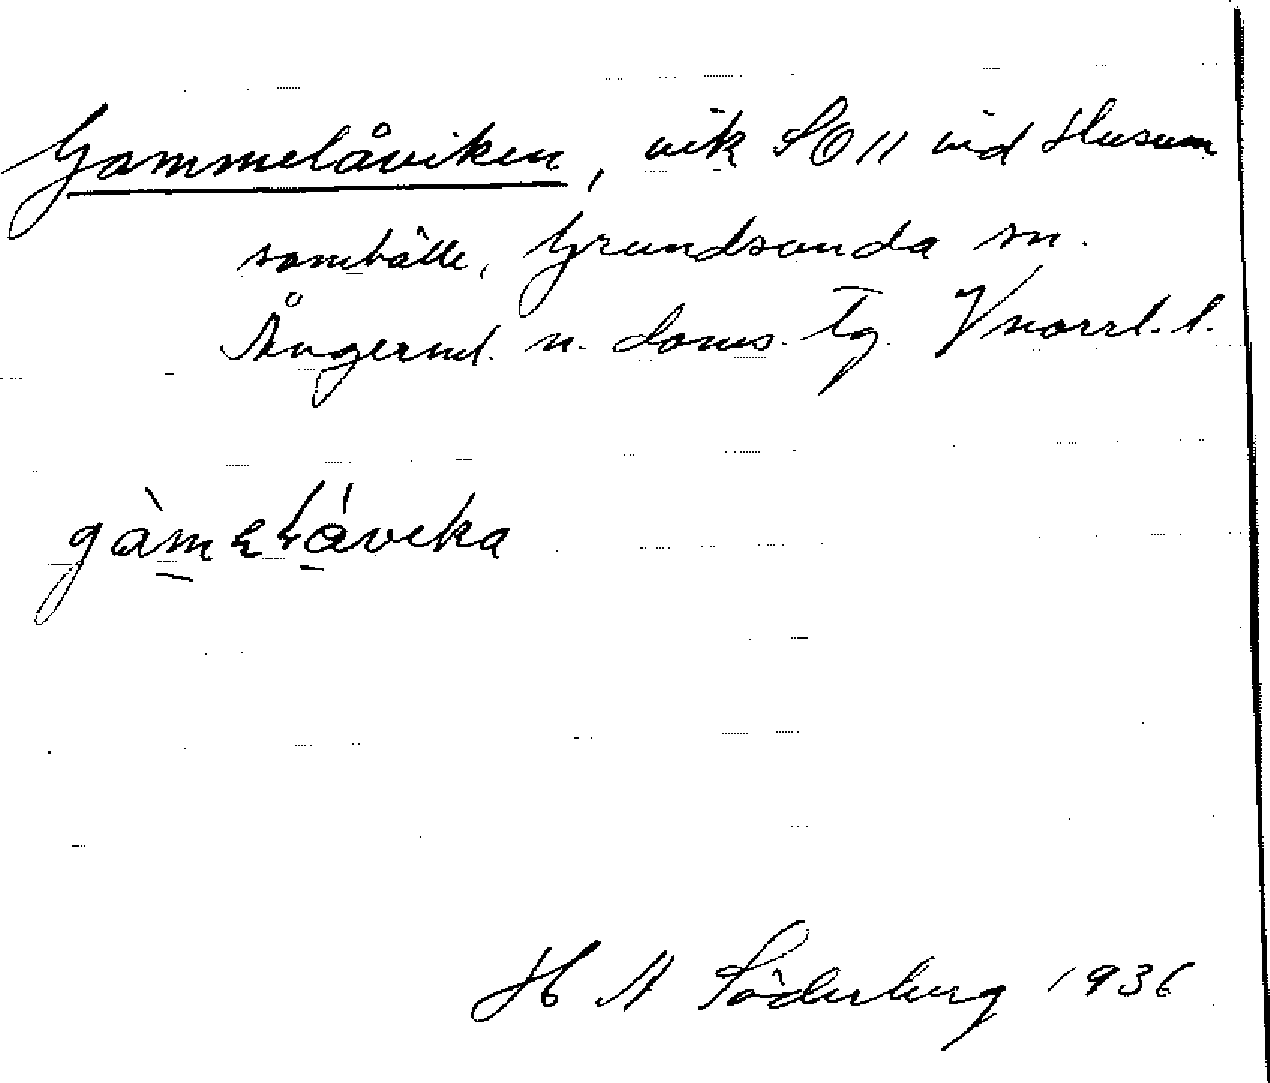 Gammelåviken, vik SO11 vid Husum
samhälle, Grundsunda sn.
Ångerml. n. doms. Tg. Vnorrl. l.
gàmelåveka
H A Söderberg 1936